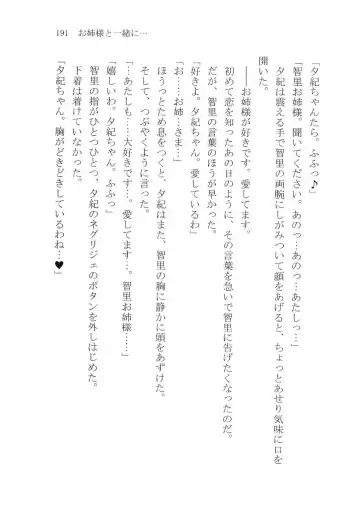 191　お姉様と一緒に…
「夕紀ちゃんたら。ふふっ♪」
「智里お姉様。聞いてください。あのっ…あたしっ…」
夕紀は震える手で智里の両腕にしがみついて顔をあげると、ちょっとあせり気味に口を
開いた。
――お姉様が好きです。愛しています。
初めて恋を知ったあの日のように、その言葉を急いで智里に告げたくなったのだ。
だが、智里の言葉のほうが早かった。
「好きよ。夕紀ちゃん。愛しているわ」
「お…お姉…さま…」
ほうっとため息をつくと、夕紀は、智里の胸に静かに頭をあずけた。
そして、つぶやくように言った。
「…あたしも…大好きです…。愛してます…。智里お姉様……」
「嬉しいわ。夕紀ちゃん。ふふっ」
智里の指がひとつひとつ、夕紀のネグリジェのボタンを外しはじめた。
下着は着けていなかった。
「夕紀ちゃん。胸がどきどきしているわね…♥」